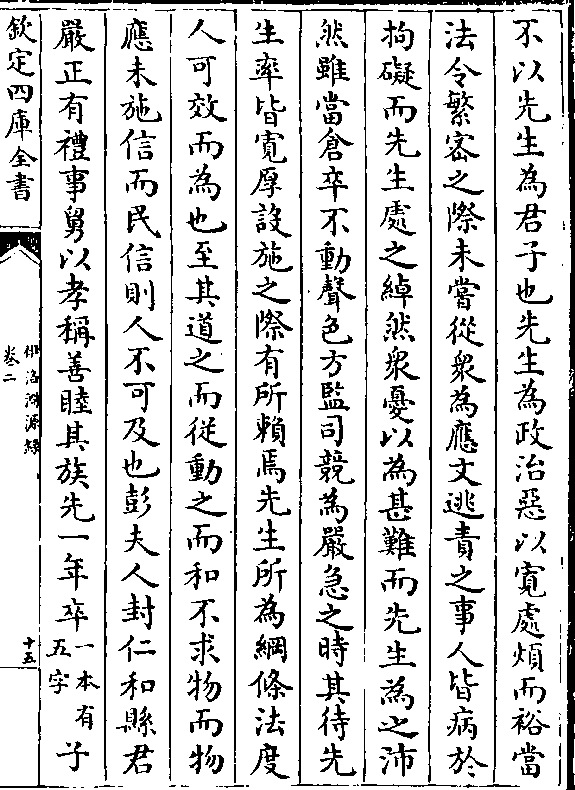 不以先生為君子也先生為政治惡以寛處煩而裕當
法令繁宻之際未嘗從衆為應文逃責之事人皆病於
拘礙而先生處之綽然衆憂以為甚難而先生為之沛
然雖當倉卒不動聲色方監司競為嚴急之時其待先
生率皆寛厚設施之際有所賴焉先生所為綱條法度
人可效而為也至其道之而從動之而和不求物而物
應未施信而民信則人不可及也彭夫人封仁和縣君
嚴正有禮事舅以孝稱善睦其族先一年卒一本有五字子
欽定四庫全書
伊洛淵源錄
卷二
十五